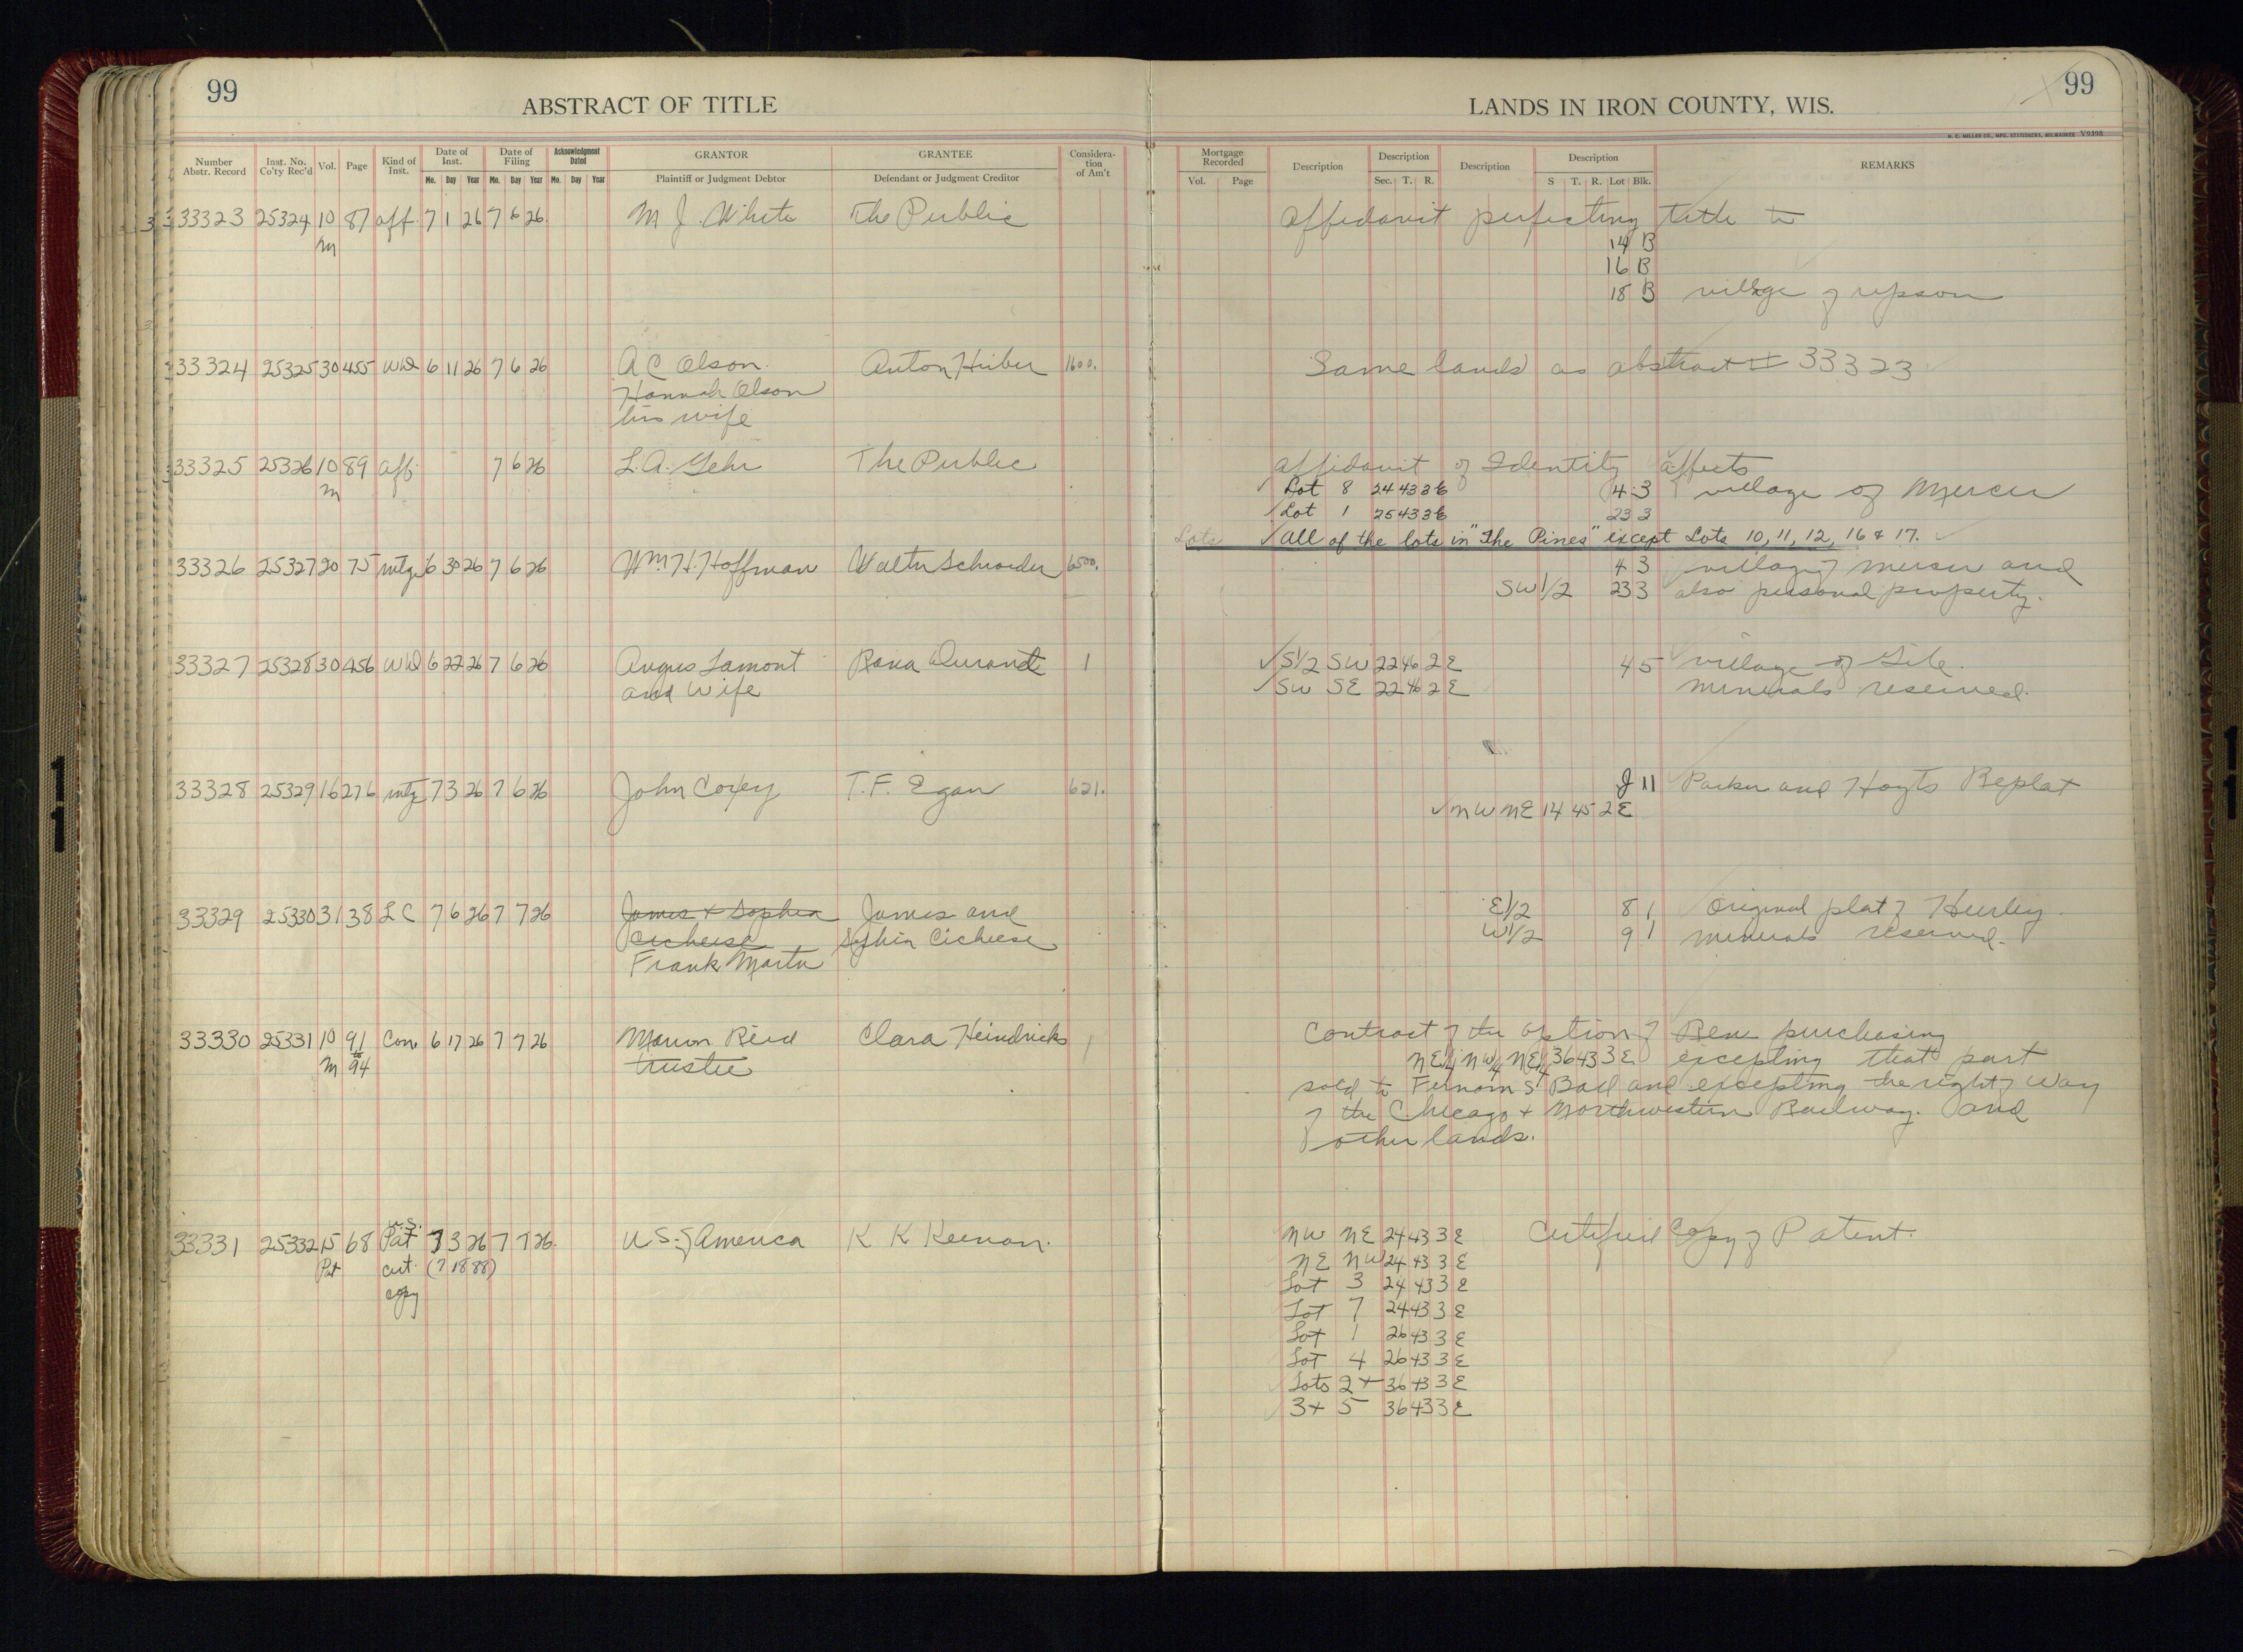 99
ABSTRACT OF TITLE
LANDS IN IRON COUNTY, WIS.
99
H. C. MILLER CO., MFG. STATIONERS, MILWAUKEE V9398
Number Abstr. Record | Inst. No. Co'ty Rec'd | Vol. | Page | Kind of Inst. | Date of Inst. Mo. Day Year | Date of Filing Mo. Day Year | Acknowledgment Dated Mo. Day Year | GRANTOR Plaintiff or Judgment Debtor | GRANTEE Defendant or Judgment Creditor | Considera-tion of Am't
Mortgage Recorded Vol. Page | Description | Description Sec. T. R. | Description | Description S T. R. Lot Blk. | REMARKS
33323 25324 10 87 aff. 7 1 26 7 6 26 M J. White The Public affidavit perfecting title to
M 14 B
16 B
18 B village of upson
33324 25325 30 455 WD 6 11 26 7 6 26 A C Olson. Anton Huber 1600. Same lands as abstract # 33323
Hannah Olson
his wife
33325 25326 10 89 aff. 7 6 26 L. A. Gehr The Public affidavit of Identity affects
M Lot 8 24 43 3 E 4 3 village of Mercer
Lot 1 25 43 3 E 23 3
Lots all of the lots in "The Pines" except Lots 10, 11, 12, 16 & 17.
33326 25327 20 75 mtge 6 30 26 7 6 26 Wm. H. Hoffman Walter Schroeder 6500. 4 3 village of mercer and
SW 1/2 23 3 also personal property.
33327 25328 30 456 WD 6 22 26 7 6 26 Angus Lamont 1 S1/2 SW 22 46 2 E 4 5 village of Gile.
and Wife SW SE 22 46 2 E minerals reserved.
33328 25329 16 276 mtg 7 3 26 7 6 26 John Coxey T. F. Egan 621. J 11 Parker and Hoyts Replat
NW NE 14 45 2 E
33329 25330 31 38 LC 7 6 26 7 7 26 James & Sophia James and E 1/2 8 1 Original plat of Hurley.
Cicheese W 1/2 9 1 minerals reserved.
Frank Martin
33330 25331 10 91 Con 6 17 26 7 7 26 Marion Reid Clara Heindricks 1 Contract of the option of purchasing
M to 94 trustee NE1/4 NW1/4 NE1/4 36 43 3 E excepting that part
sold to S Ball and excepting the right of way
of the Chicago & Northwestern Railway. and
other lands.
33331 25332 15 68 U.S. Pat 7 3 26 7 7 26. U.S. of America K K Keenan. NW NE 24 43 3 E Certified Copy of Patent.
Pat cert. (7 1888) NE NW 24 43 3 E
copy Lot 3 24 43 3 E
Lot 7 24 43 3 E
Lot 1 26 43 3 E
Lot 4 26 43 3 E
Lots 2 + 36 43 3 E
3 + 5 36 43 3 E